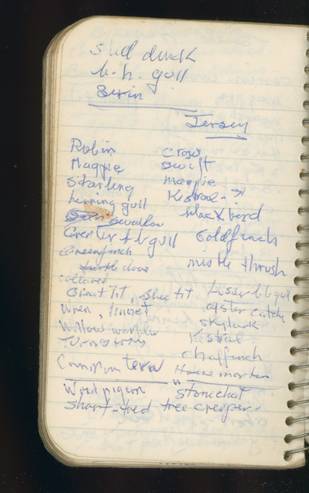 Shel duck
b.h. gull
Serin
Jersey
Robin crow
Magpie swift
Starling magpie
herring gull Kestrel
swallow blackbird
Greater b b gull Goldfinch
Greenfinch mistle thrush
collared dove
Great tit, blue tit Lesser b b gul
Wren, linnet oyster catcher
Willow warbler skylark
Turnstone Kestrel
chaffinch
Common tern House marten
Wood pigeon stonechat
Short-toed tree creeper